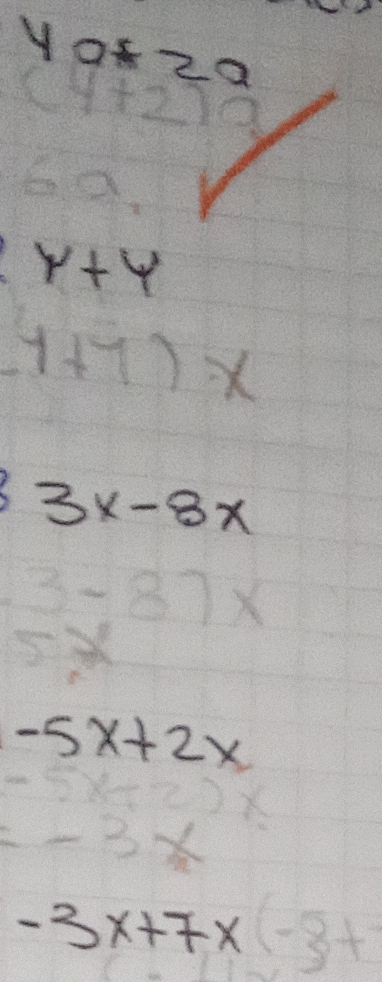 4a+2a
(4+2)a
6a
y+y
3x-8x
3-8)x
5x
-5x+2x
-5x+2)x
= -3x
-3x+7x (-3+